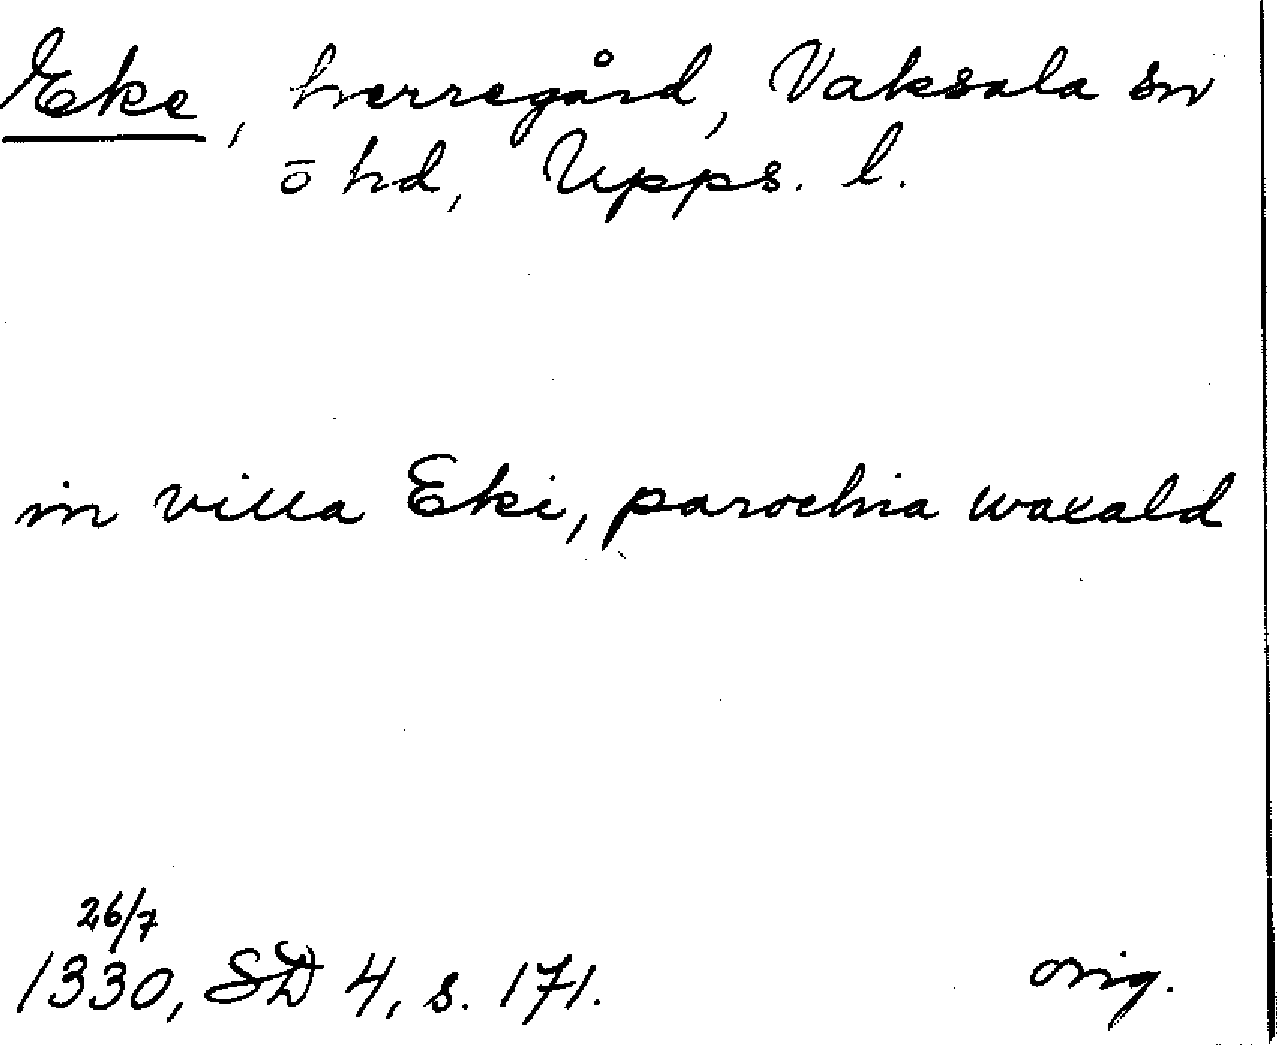 Eke, herregård, Vaksala sn
ō hd, Upps. l.
in villa Eki, parochia waxald
26/7
1330, SD 4, s. 171. orig.